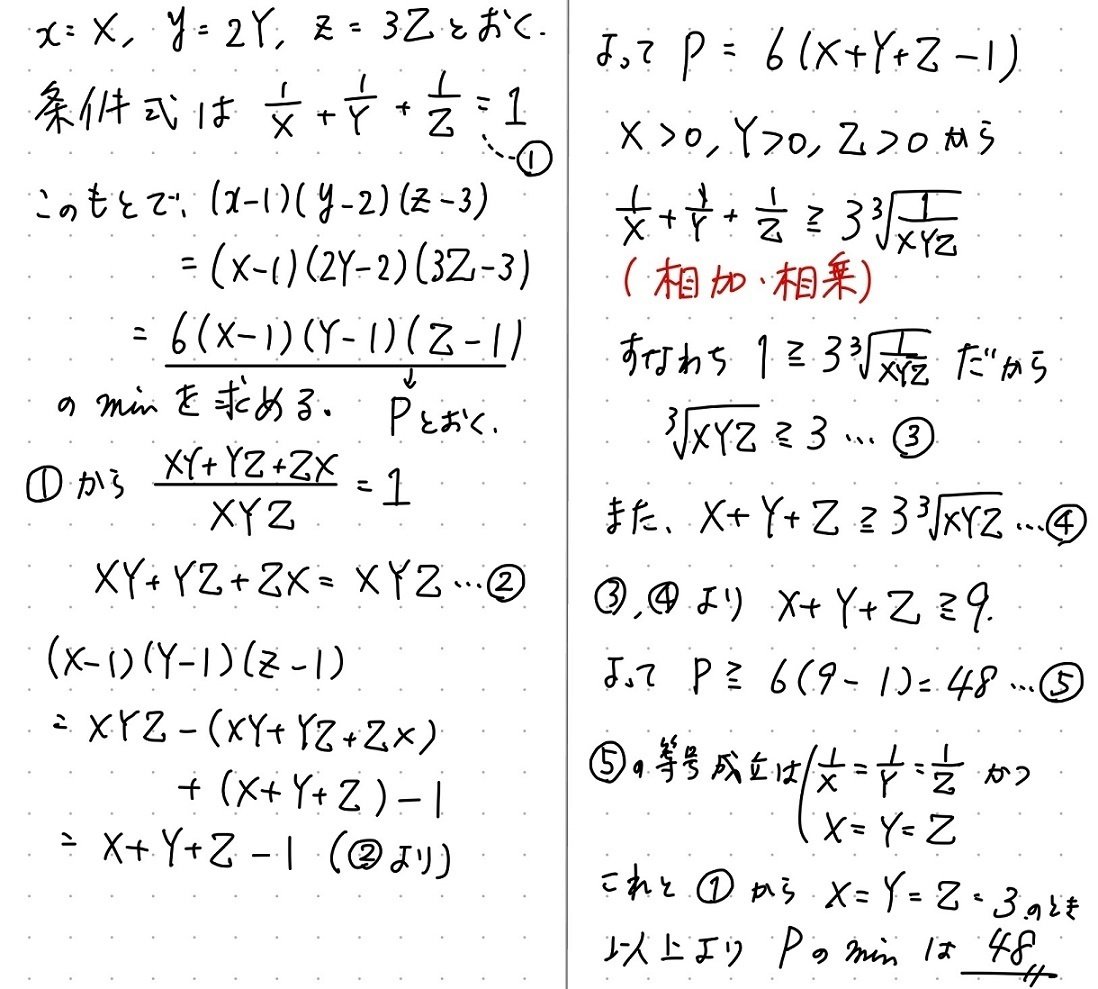 x = X, y = 2Y, z = 3Z とおく.
条件式は 1/X + 1/Y + 1/Z = 1 …①
このもとで, (x-1)(y-2)(z-3)
= (X-1)(2Y-2)(3Z-3)
= 6(X-1)(Y-1)(Z-1)
の min を求める. ↓ Pとおく.
①から (XY+YZ+ZX)/XYZ = 1
XY+YZ+ZX = XYZ …②
(X-1)(Y-1)(Z-1)
= XYZ-(XY+YZ+ZX)
+ (X+Y+Z)-1
= X+Y+Z-1 (②より)
よって P = 6(X+Y+Z-1)
X>0, Y>0, Z>0 から
1/X + 1/Y + 1/Z ≧ 3∛(1/XYZ)
(相加・相乗)
すなわち 1 ≧ 3∛(1/XYZ) だから
∛XYZ ≧ 3 … ③
また, X+Y+Z ≧ 3∛XYZ …④
③,④より X+Y+Z ≧ 9.
よって P ≧ 6(9-1) = 48 …⑤
⑤の等号成立は 1/X = 1/Y = 1/Z かつ
X = Y = Z
これと①から X = Y = Z = 3 のとき
以上より Pの min は 48